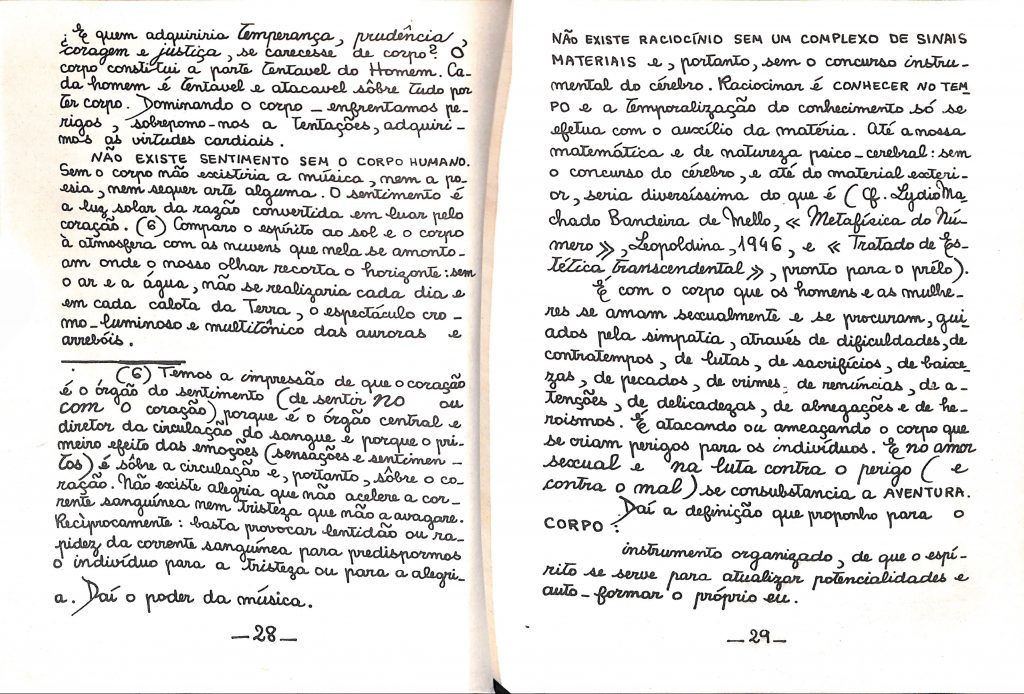 ¿E quem adquiriria temperança, prudência,
coragem e justiça, se carecesse de corpo? O
corpo constitui a parte tentavel do Homem. Ca-
da homem é tentavel e atacavel sôbre tudo por
ter corpo. Dominando o corpo _ enfrentamos pe-
rigos, sobrepomo-nos a tentações, adquiri-
mos as virtudes cardiais.
NÃO EXISTE SENTIMENTO SEM O CORPO HUMANO.
Sem o corpo não existiria a música, nem a po-
esia, nem sequer arte alguma. O sentimento é
a luz solar da razão convertida em luar pelo
coração. (6) Comparo o espírito ao sol e o corpo
à atmosfera com as nuvens que nela se amonto-
am onde o nosso olhar recorta o horizonte: sem
o ar e a água, não se realizaria cada dia e
em cada calota da Terra, o espectáculo cro-
mo-luminoso e multitônico das auroras e
arrebóis.
(6) Temos a impressão de que o coração
é o órgão do sentimento (de sentir NO ou
COM O coração) porque é o órgão central e
diretor da circulação do sangue e porque o pri-
meiro efeito das emoções (sensações e sentimen-
tos) é sôbre a circulação e, portanto, sôbre o co-
ração. Não existe alegria que não acelere a cor-
rente sanguínea nem tristeza que não a avagare.
Recìprocamente: basta provocar lentidão ou ra-
pidez da corrente sanguínea para predispormos
o indivíduo para a tristeza ou para a alegri-
a. Daí o poder da música.
_28_
NÃO EXISTE RACIOCÍNIO SEM UM COMPLEXO DE SINAIS
MATERIAIS e, portanto, sem o concurso instru-
mental do cérebro. Raciocinar é CONHECER NO TEM-
PO e a temporalização do conhecimento só se
efetua com o auxílio da matéria. Até a nossa
matemática e de natureza psico-cerebral: sem
o concurso do cérebro, e até do material exteri-
or, seria diversíssima do que é (Cf. Lydio Ma-
chado Bandeira de Mello, « Metafísica do Nú-
mero », Leopoldina, 1946, e « Tratado de Es-
tética transcendental », pronto para o prélo).
É com o corpo que os homens e as mulhe-
res se amam sexualmente e se procuram, gui-
ados pela simpatia, através de dificuldades, de
contratempos, de lutas, de sacrifícios, de baixe-
zas, de pecados, de crimes, de renúncias, de a-
tenções, de delicadezas, de abnegações e de he-
roismos. É atacando ou ameaçando o corpo que
se criam perigos para os indivíduos. E no amor
sexual e na luta contra o perigo (e
contra o mal) se consubstancia a AVENTURA.
Daí a definição que proponho para o
CORPO:
instrumento organizado, de que o espí-
rito se serve para atualizar potencialidades e
auto-formar o próprio eu.
_29_